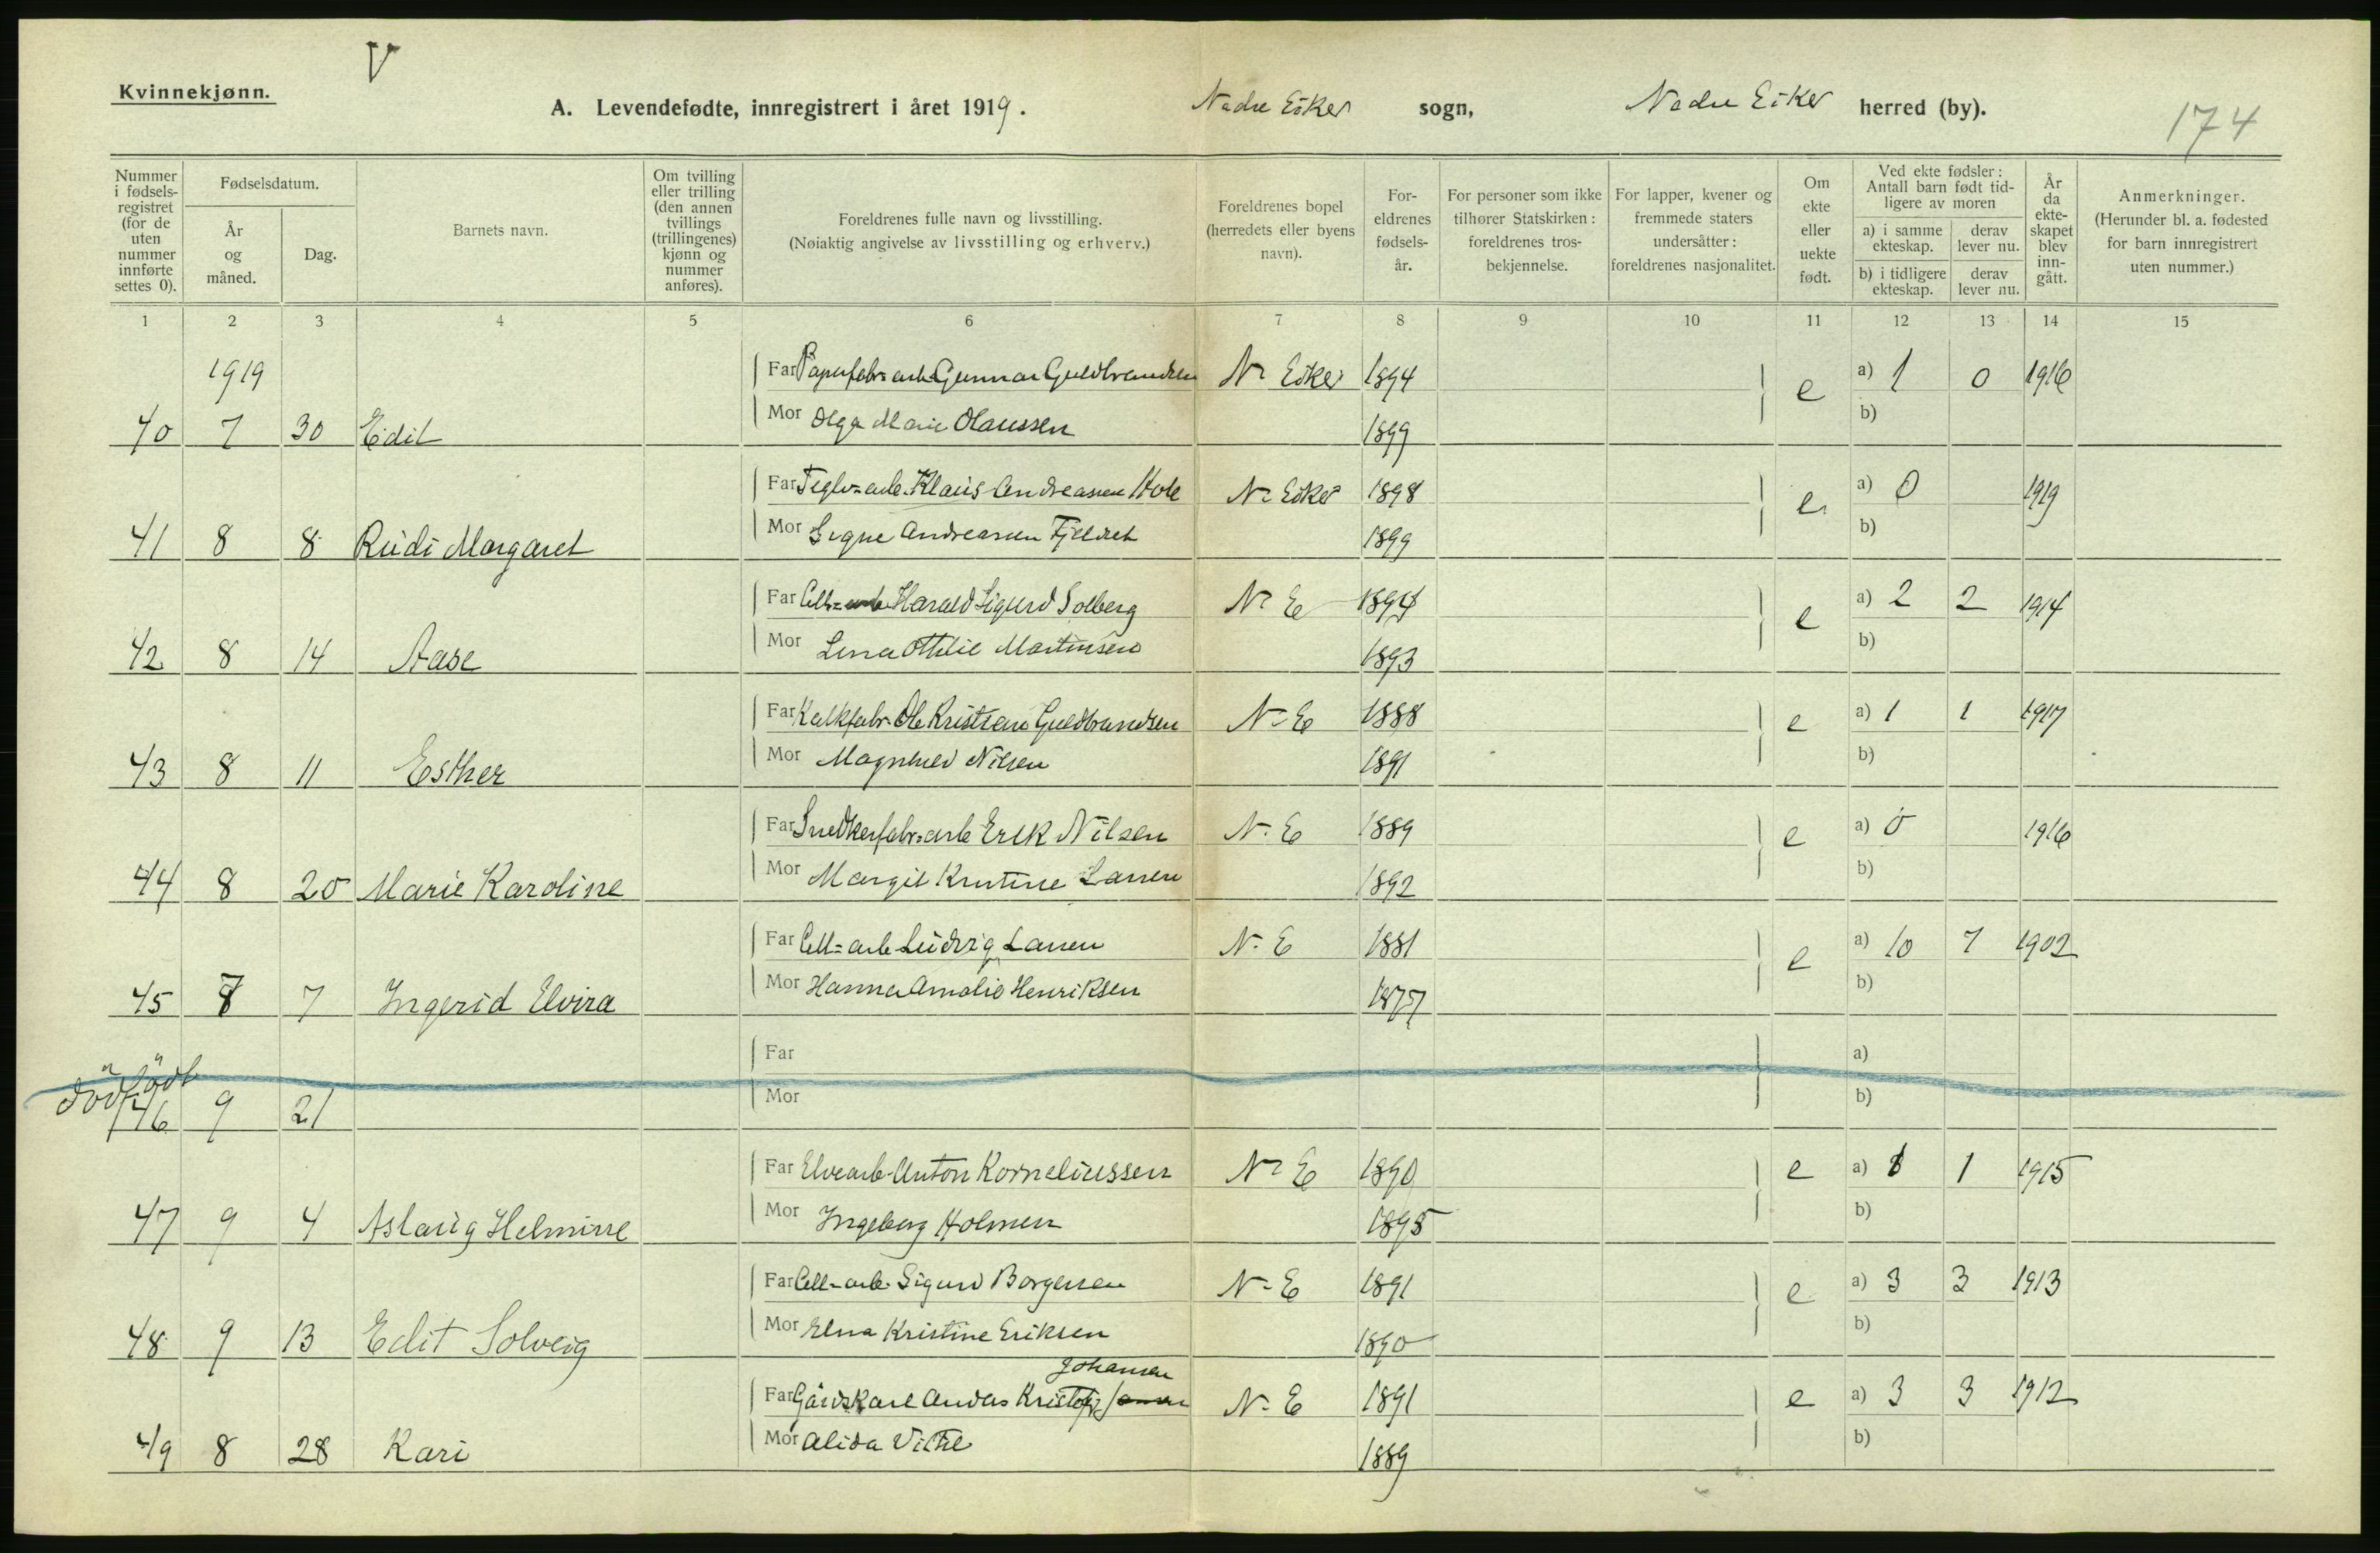 V
Kvinnekjønn.
A. Levendefødte, innregistrert i året 1919. Nedre Eiker sogn, Nedre Eiker herred (by).
174
Nummer i fødsels-registret (for de uten nummer innførte settes 0).
Fødselsdatum.
År og måned.
Dag.
Barnets navn.
Om tvilling eller trilling (den annen tvillings (trillingenes) kjønn og nummer anføres).
Foreldrenes fulle navn og livsstilling.
(Nøiaktig angivelse av livsstilling og erhverv.)
Foreldrenes bopel (herredets eller byens navn).
For-eldrenes fødsels-år.
For personer som ikke tilhører Statskirken: foreldrenes tros-bekjennelse.
For lapper, kvener og fremmede staters undersåtter: foreldrenes nasjonalitet.
Om ekte eller uekte født.
Ved ekte fødsler: Antall barn født tid-ligere av moren
a) i samme ekteskap.
derav lever nu.
b) i tidligere ekteskap.
derav lever nu.
År da ekte-skapet blev inn-gått.
Anmerkninger.
(Herunder bl. a. fødested for barn innregistrert uten nummer.)
1 2 3 4 5 6 7 8 9 10 11 12 13 14 15
1919
Far Papirfabr=arb. Gunnar Guldbrandsen Nr Eiker 1894 e a) 1 0 1916
40 7 30 Edit Mor Olga Marie Olaussen 1899 b)
Far Teglv=arb. Klaus Andreassen Hole Nr Eiker 1898 e a) 0 1919
41 8 8 Rudi Margaret Mor Signe Andreassen 1899 b)
Far Cell=arb Harald Sigurd Solberg Nr E 1894 e a) 2 2 1914
42 8 14 Aase Mor Lina Othilie Martinsen 1893 b)
Far Kalkfabr. Ole Kristian Guldbrandsen N-E 1888 e a) 1 1 1917
43 8 11 Esther Mor Magnhild Nilsen 1891 b)
Far Snedkerfabr=arb Erik Nilsen N. E 1889 e a) 0 1916
44 8 20 Marie Karoline Mor Margit Kristine Larsen 1892 b)
Far Cell=arb Ludvig Larsen N. E 1881 e a) 10 7 1902
45 7 7 Ingerid Elvira Mor Hanna Amalie Henriksen 1877 b)
dödfödt
Far a)
46 9 21 Mor b)
Far Elvearb. Anton Korneliussen Nr E 1890 e a) 1 1 1915
47 9 4 Aslaug Helmine Mor Ingeborg Holmen 1895 b)
Far Cell=arb. Sigurd Borgersen N-E 1891 e a) 3 3 1913
48 9 13 Edit Solveig Mor Elna Kristine Eriksen 1890 b)
Johansen
Far Gårdskarl Andas Kristofz N-E 1891 e a) 3 3 1912
49 8 28 Kari Mor Alida 1889 b)